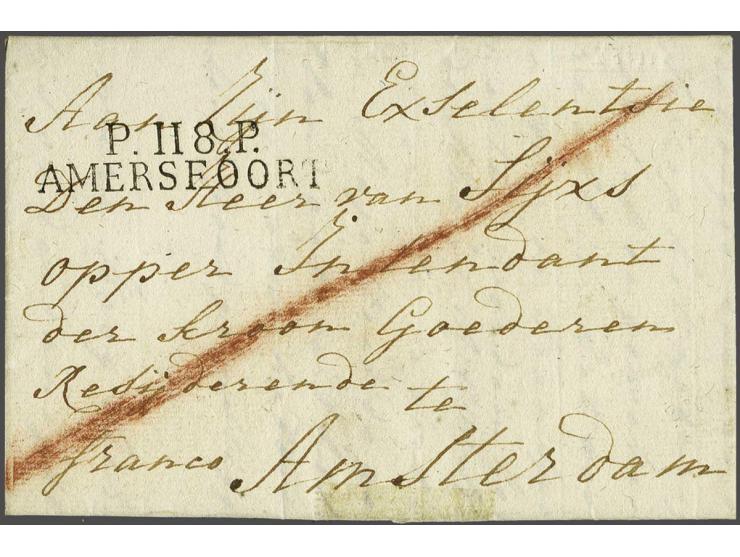 Aan Zijn Exselentsie
P.118.P.
AMERSFOORT
Den Heer van Sijxs
opper Intendant
der kroon Goederen
Residerende te
franco Amsterdam